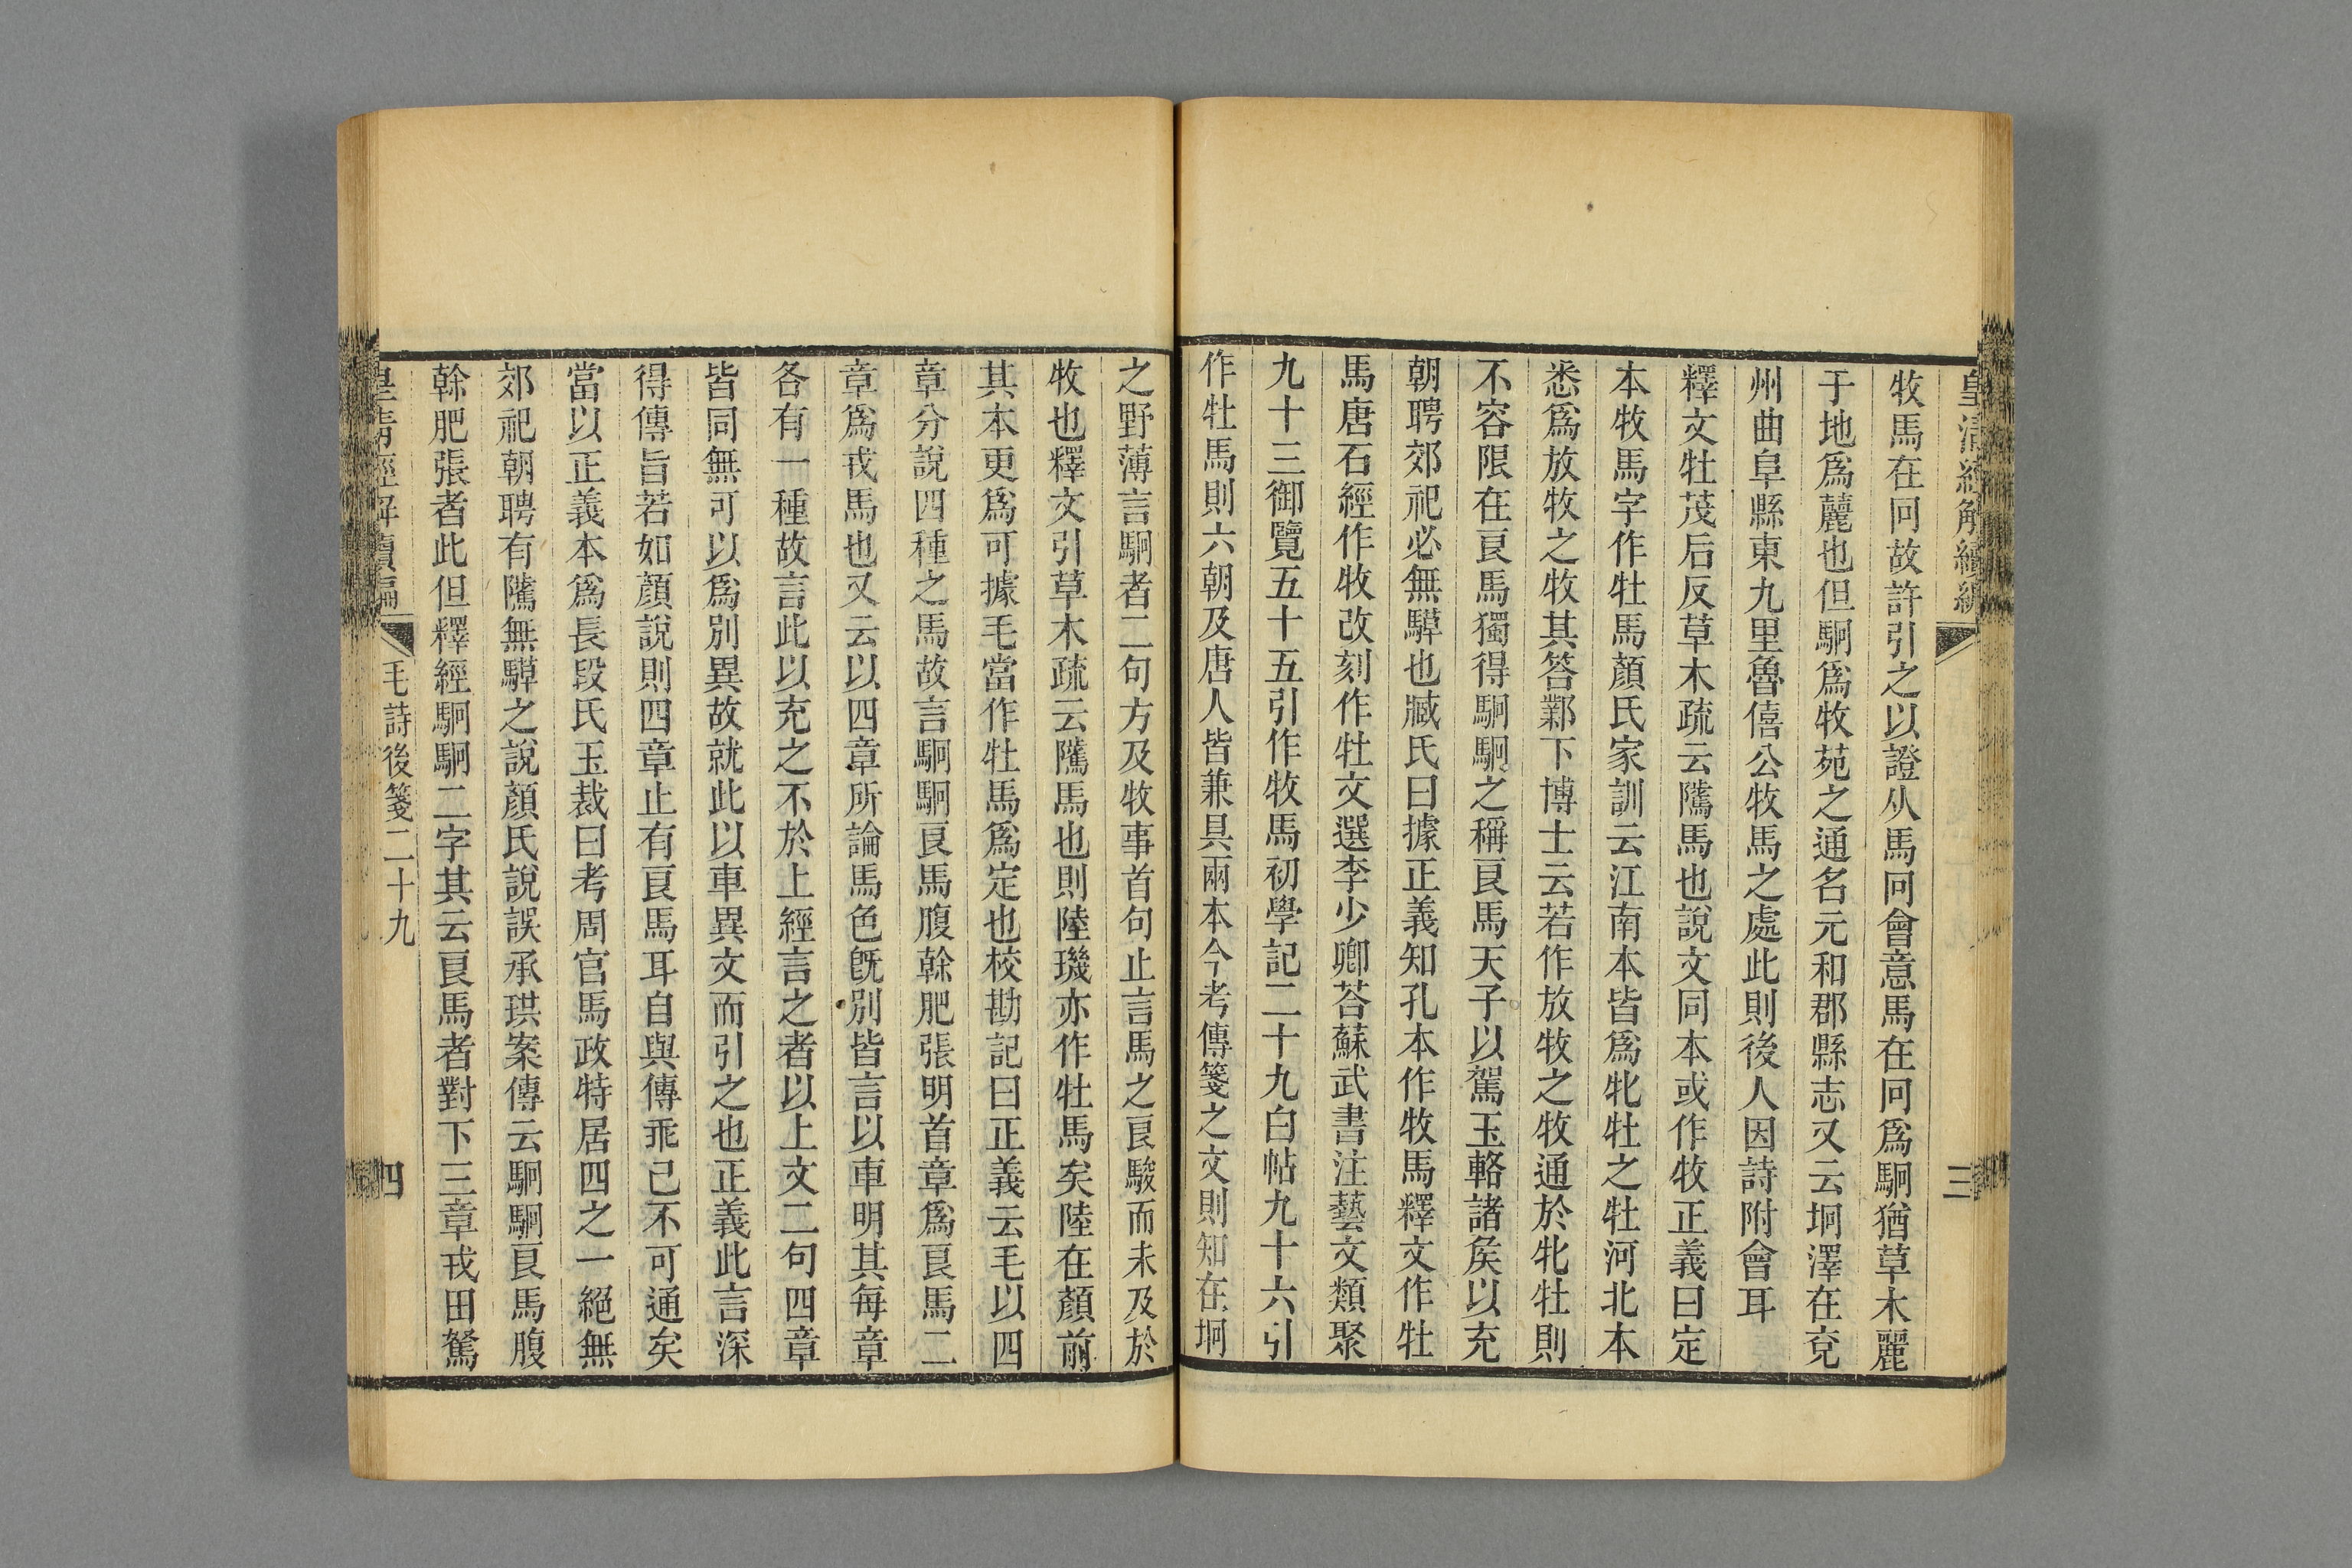 皇清經解續編
三
牧馬在冋故許引之以證从馬冋會意馬在冋爲駉猶草木麗
于地爲麓也但駉爲牧苑之通名元和郡縣志又云坰澤在兗
州曲阜縣東九里魯僖公牧馬之處此則後人因詩附會耳
釋文牡茂后反草木疏云騭馬也說文同本或作牧正義曰定
本牧馬字作牡馬顏氏家訓云江南本皆爲牝牡之牡河北本
悉爲放牧之牧其答鄴下博士云若作放牧之牧通於牝牡則
不容限在良馬獨得駉駉之稱良馬天子以駕玉輅諸矦以充
朝聘郊祀必無騲也臧氏曰據正義知孔本作牧馬釋文作牡
馬唐石經作牧改刻作牡文選李少卿荅蘇武書注藝文類聚
九十三御覽五十五引作牧馬初學記二十九白帖九十六引
作牡馬則六朝及唐人皆兼具兩本今考傳箋之文則知在坰
之野薄言駉者二句方及牧事首句止言馬之良駿而未及於
牧也釋文引草木疏云騭馬也則陸璣亦作牡馬矣陸在顏前
其本更爲可據毛當作牡馬爲定也校勘記曰正義云毛以四
章分說四種之馬故言駉駉良馬腹榦肥張明首章爲良馬二
章爲戎馬也又云以四章所論馬色旣別皆言以車明其每章
各有一種故言此以充之不於上經言之者以上文二句四章
皆同無可以爲別異故就此以車異文而引之也正義此言深
得傳旨若如顏說則四章止有良馬耳自與傳乖己不可通矣
當以正義本爲長段氏玉裁曰考周官馬政特居四之一絕無
郊祀朝聘有騭無騲之說顏氏說誤承珙案傳云駉駉良馬腹
榦肥張者此但釋經駉駉二字其云良馬者對下三章戎田駑
皇清經解續編
毛詩後箋二十九
四